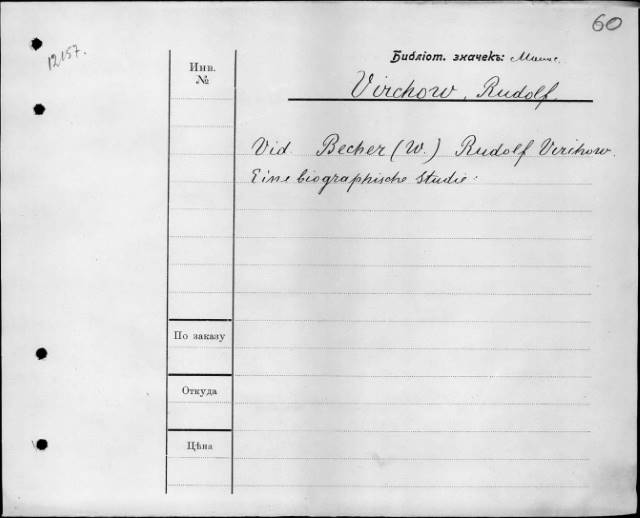 60
12157.
Библіот. значекъ:
Инв.
№
Virchow, Rudolf.
Vid. Becher (W.) Rudolf Virchow.
Eine biographische Studie.
По заказу
Откуда
Цѣна